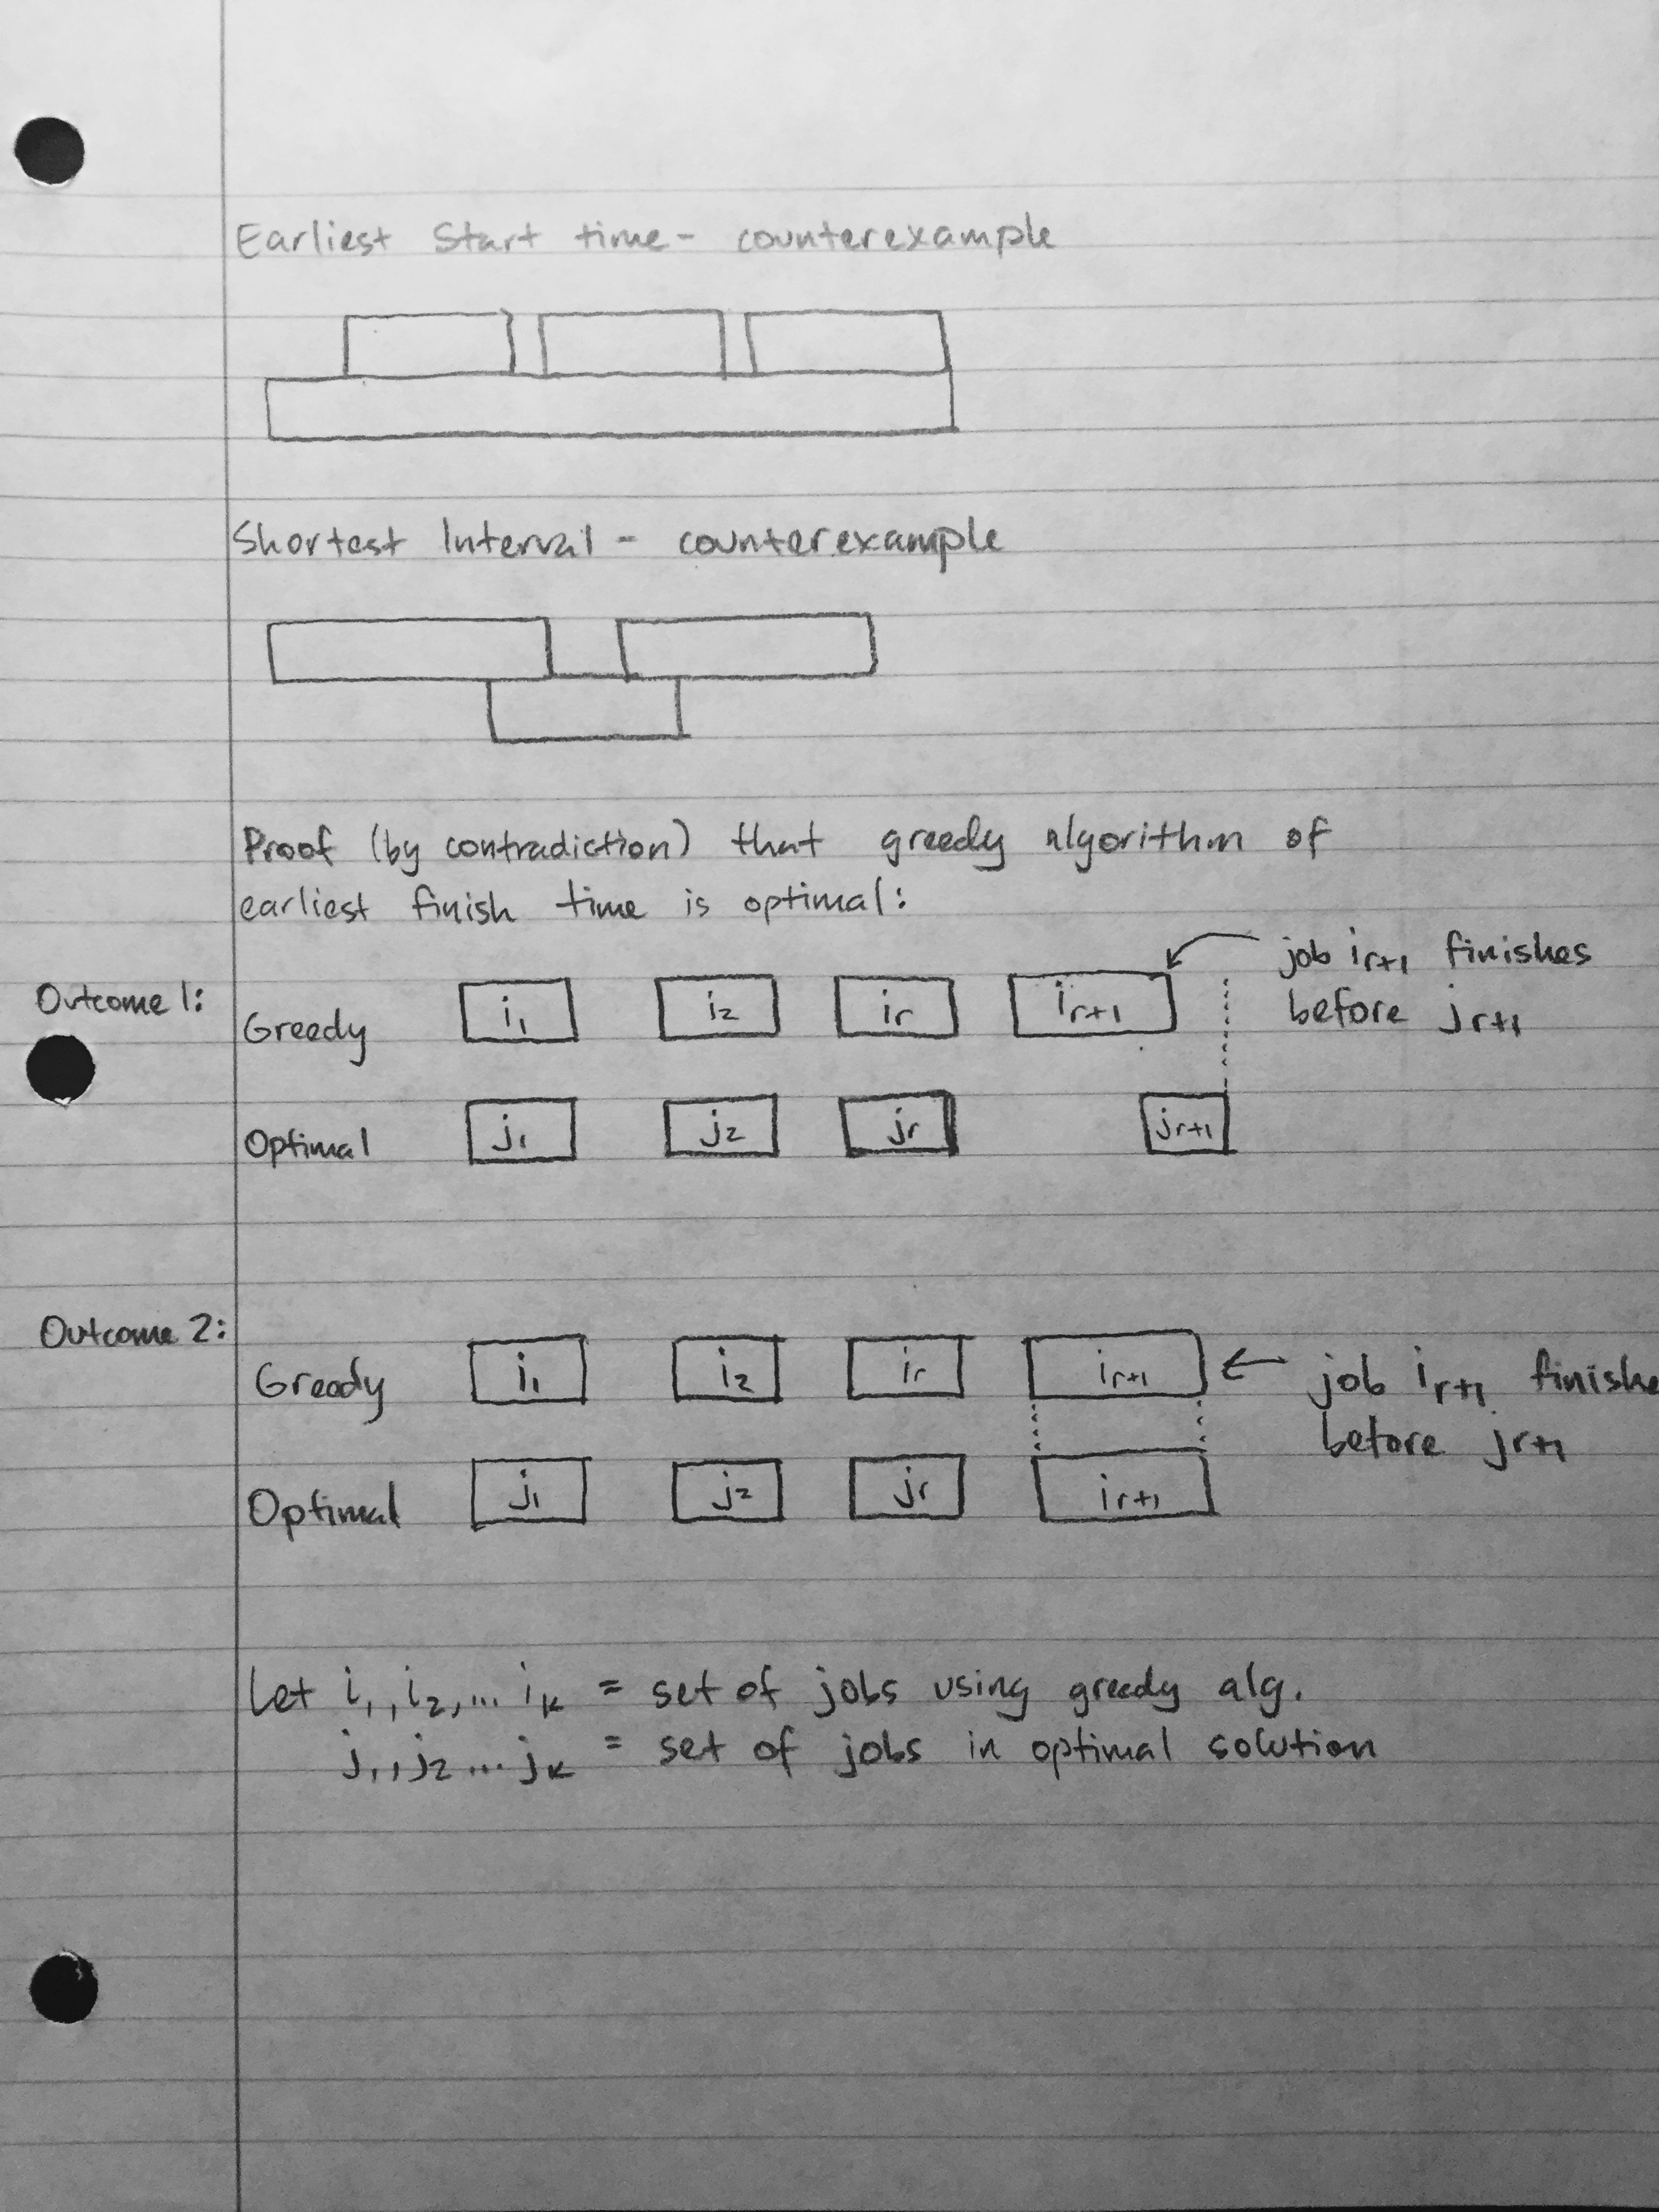 Earliest Start time - counterexample
Shortest Interval - counterexample
Proof (by contradiction) that greedy algorithm of
earliest finish time is optimal:
Outcome 1:
Greedy i₁ i₂ iᵣ iᵣ₊₁
job iᵣ₊₁ finishes
before jᵣ₊₁
Optimal j₁ j₂ jᵣ jᵣ₊₁
Outcome 2:
Greedy i₁ i₂ iᵣ iᵣ₊₁
job iᵣ₊₁ finishe
before jᵣ₊₁
Optimal j₁ j₂ jᵣ iᵣ₊₁
Let i₁, i₂, ... iₖ = set of jobs using greedy alg.
j₁, j₂ ... jₖ = set of jobs in optimal solution